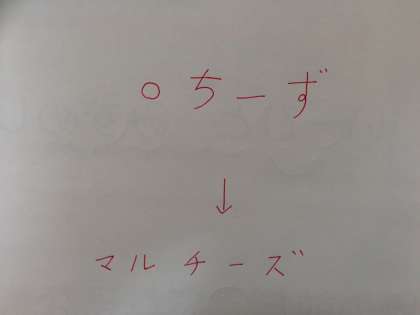 ○ちーず
↓
マルチーズ